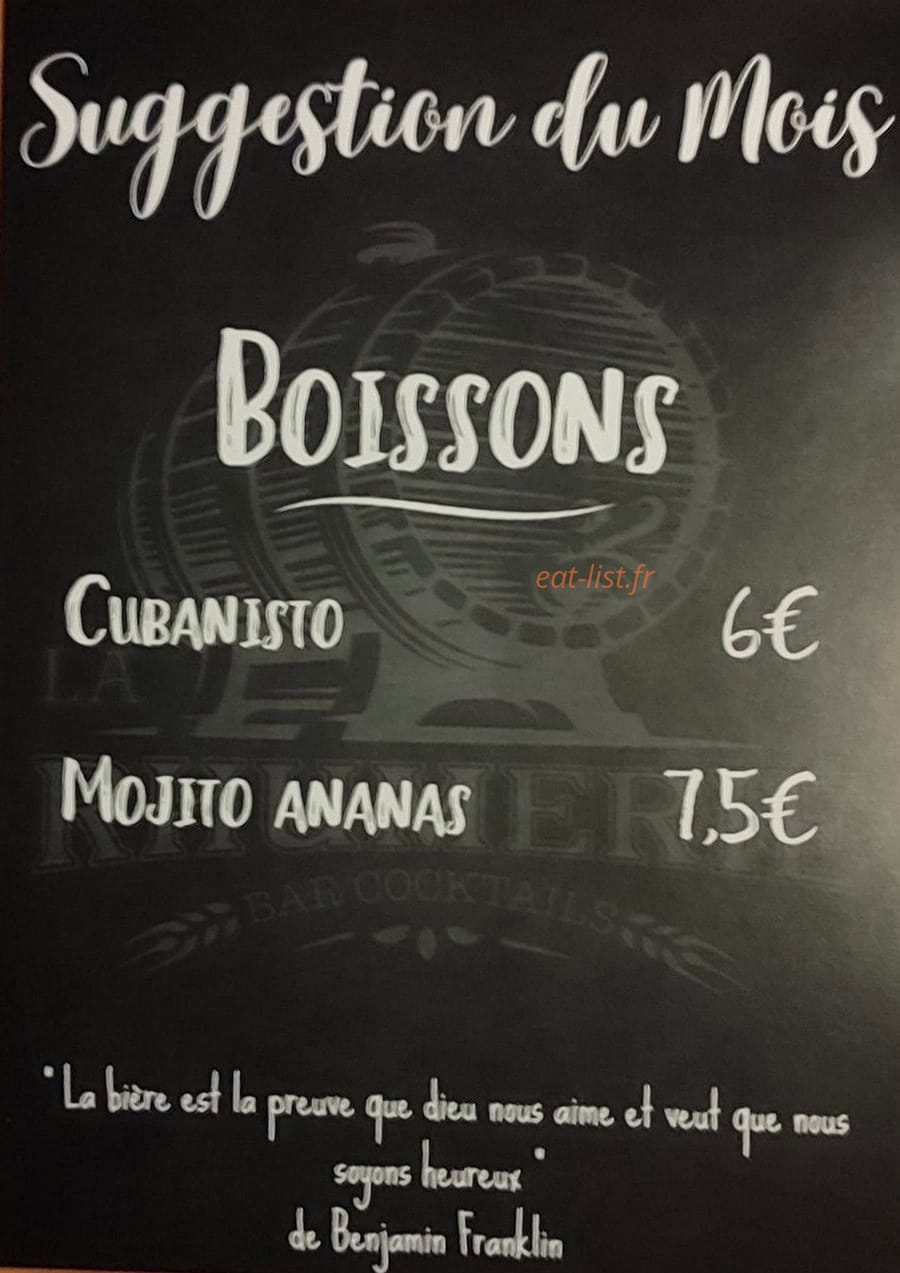 Suggestion du Mois
BOISSONS
eat-list.fr
CUBANISTO 6€
LA
RHUMERIE
MOJITO ANANAS 7,5€
BAR COCKTAILS
"La bière est la preuve que dieu nous aime et veut que nous
soyons heureux"
de Benjamin Franklin